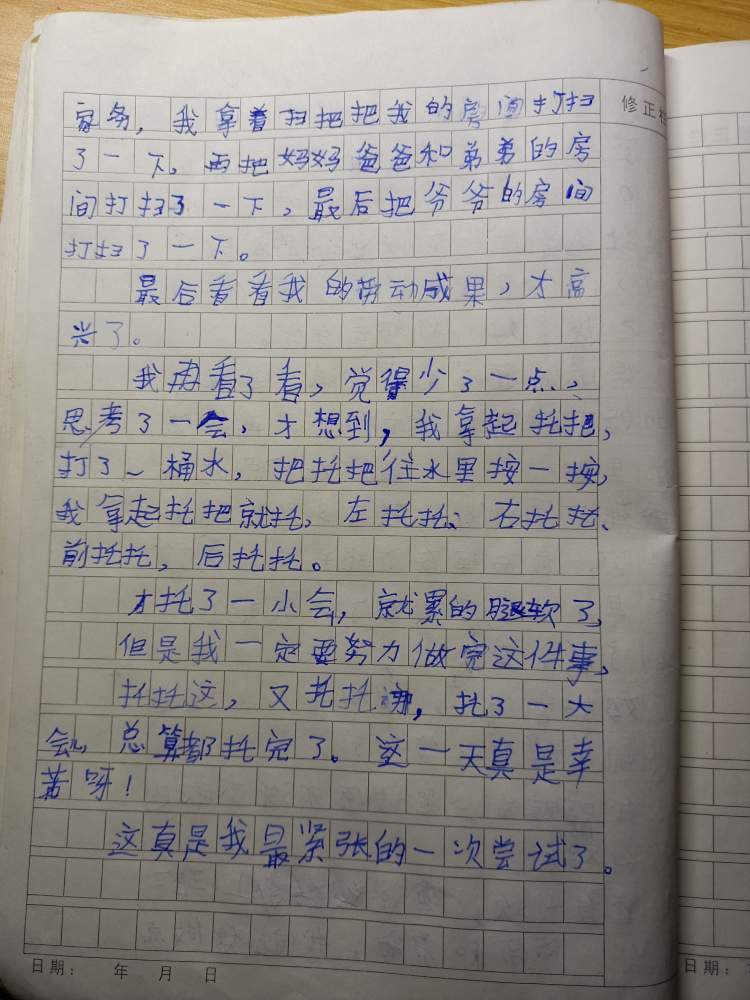 修正栏
家务，我拿着扫把把我的房间打扫
了一下，再把妈妈爸爸和弟弟的房
间打扫了一下，最后把爷爷的房间
打扫了一下。
最后看看我的劳动成果，才高
兴了。
我再看了看，觉得少了一点，
思考了一会，才想到，我拿起托把，
打了一桶水，把托把往水里按一按，
我拿起托把就托，左托托、右托托、
前托托，后托托。
才托了一小会，就累的腿软了，
但是我一定要努力做完这件事，
托托这，又托托那，托了一大
会，总算都托完了。这一天真是幸
苦呀！
这真是我最紧张的一次尝试了。
日期： 年 月 日
日期：